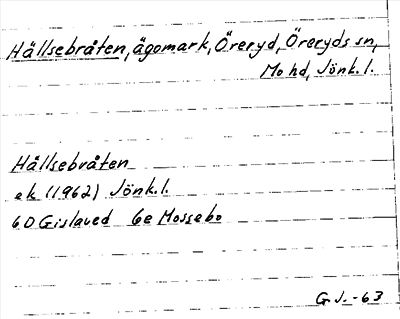 Hällsebråten, ägomark, Öreryd, Öreryds sn,
Mo hd, Jönk. l.
Hällsebråten
ek (1962) Jönk. l.
6D Gislaved 6e Mossebo
G J. -63